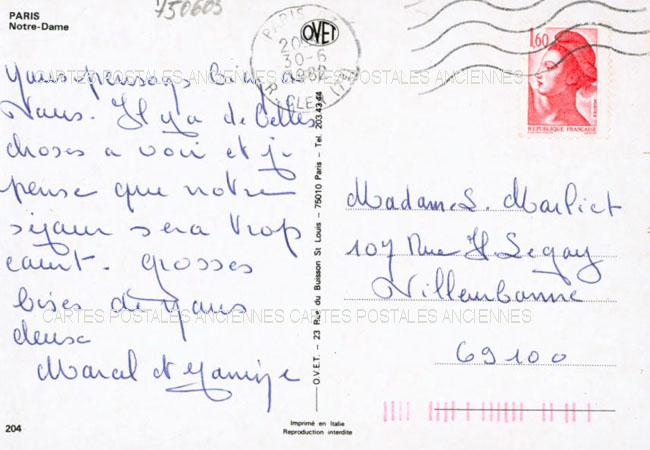 PARIS
Notre-Dame
750605
OVET
PARIS
30-6
1982
1,60
REPUBLIQUE FRANÇAISE
pensons bien a
Vous. Il y a de belles
choses a voir et je
pense que notre
séjour sera trop
court. grosses
bises de nous
deux
Marcel et
CARTES POSTALES ANCIENNES CARTES POSTALES ANCIENNES
CARTES POSTALES ANCIENNES CARTES POSTALES ANCIENNES
O.V.E.T. - 23 Rue du Buisson St Louis - 75010 Paris - Tel. 203.43.44
Madame S. Marliet
107 Rue H Legay
Villeurbanne
69100
204
Imprimé en Italie
Reproduction interdite